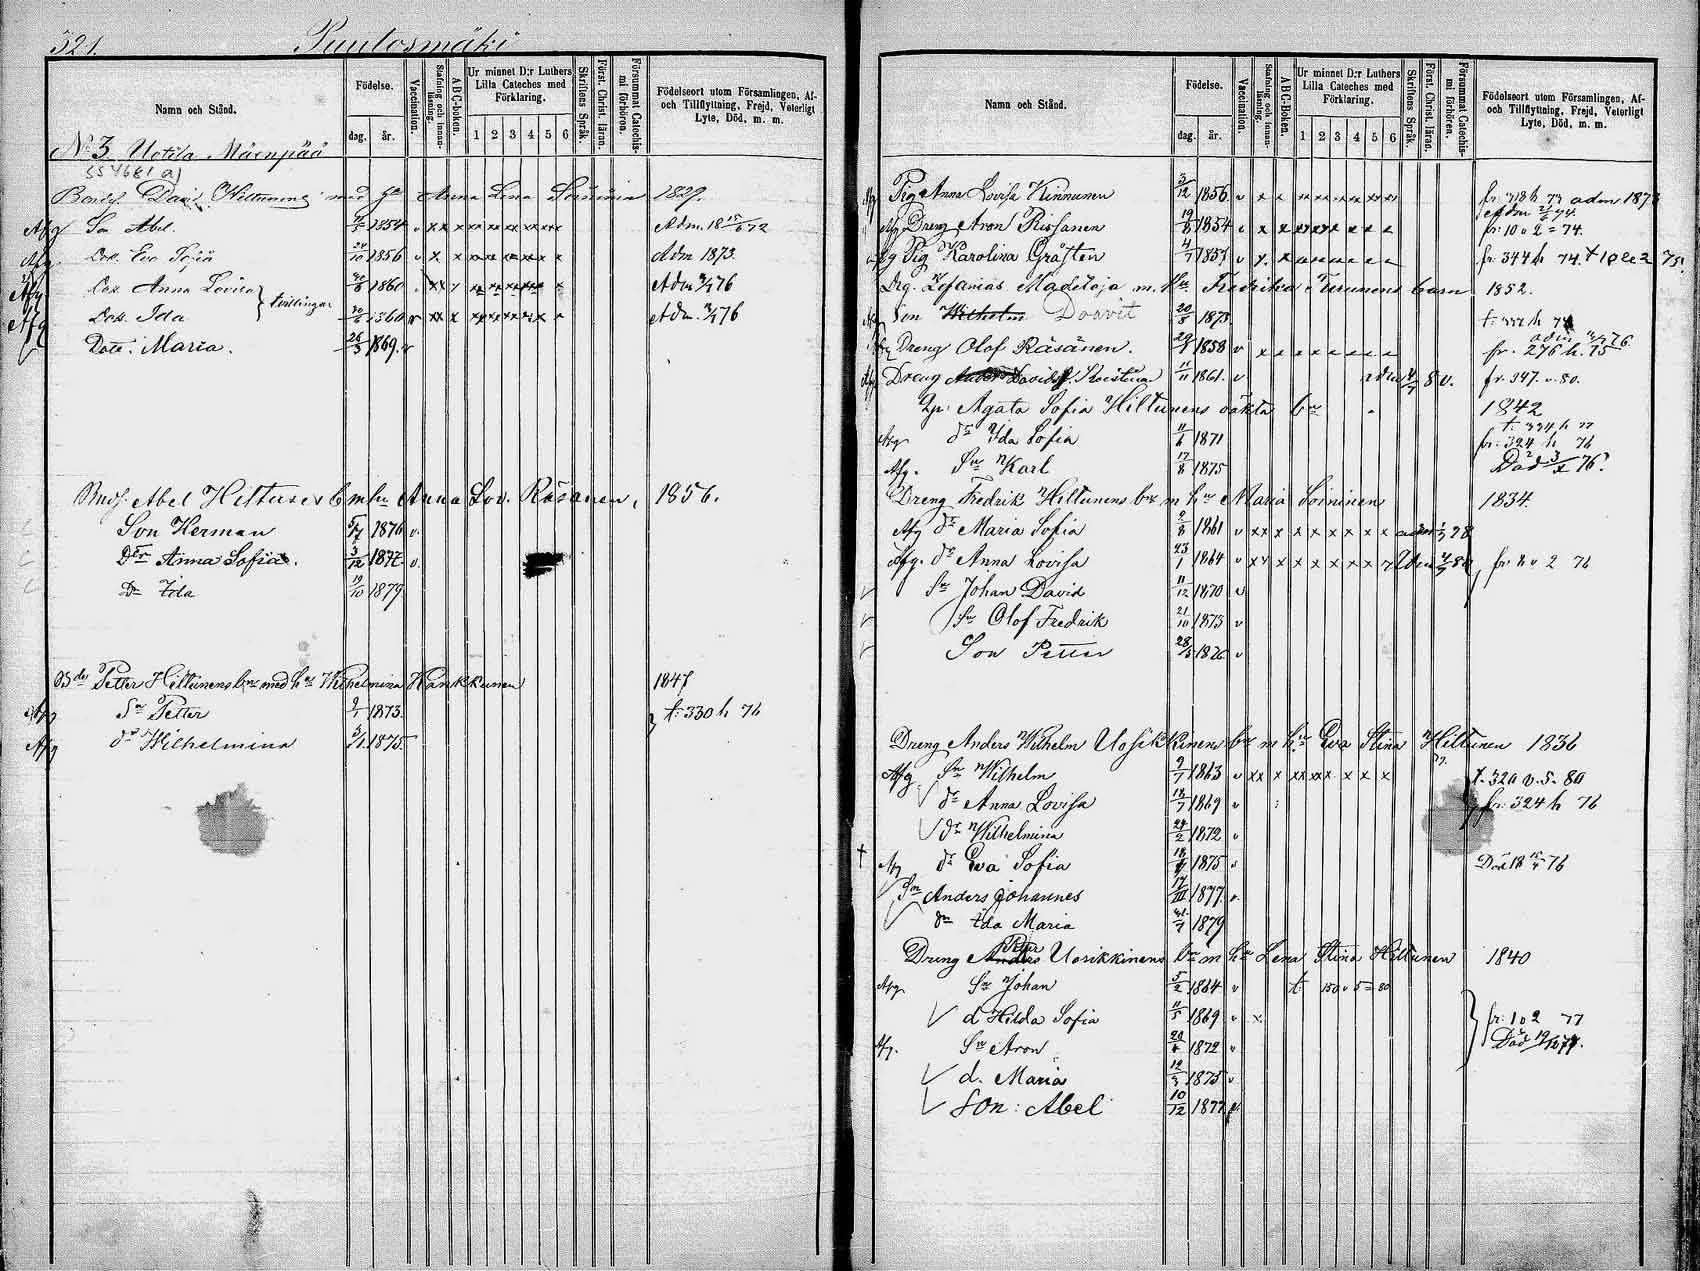 321.
Puutosmäki
Namn och Stånd.
Födelse.
dag. år.
Vaccination.
Stafning och innanläsning.
ABC-boken.
Ur minnet D:r Luthers Lilla Cateches med Förklaring.
1 2 3 4 5 6
Skriftens Språk.
Först. Christ. läran.
Försummat Catechismi förhören.
Födelseort utom Församlingen, Af- och Tillflyttning, Frejd, Veterligt Lyte, Död, m. m.
No 3 Uotila Mäenpää
554681 a)
David Hiltunens med Anna Lena 1829.
Afg Son Abel. 1854 v xx x xx xx xx xx Adm. 18 15/6 72
Afg. Dot. Eva Sofia 24/10 1856 v x x Adm 1873.
Afg Dot. Anna Lovisa 30/6 1860 Adm 76
tvillingar
Afg Dot. Ida 30/6 1860 v Adm. 76
Dott. Maria. 1869. v
Abel Hiltunes b m hu Anna Lov. Räsänen, 1856.
Son Herman 5/7 1876 v.
Dtr Anna Sofia. 3/12 1877 v.
Dr Ida 19/10 1879
Petter Hiltunens bnr med hu Wilhelmina Kankkunen 1847
Afg Sn Petter 9/1 1873.
t: 330 h 76
Afg dr Wilhelmina 3/1 1875
Namn och Stånd.
Födelse.
dag. år.
Vaccination.
Stafning och innanläsning.
ABC-boken.
Ur minnet D:r Luthers Lilla Cateches med Förklaring.
1 2 3 4 5 6
Skriftens Språk.
Först. Christ. läran.
Försummat Catechismi förhören.
Födelseort utom Församlingen, Af- och Tillflyttning, Frejd, Veterligt Lyte, Död, m. m.
Afg Pig Anna Lovisa Kinnunen 3/12 1856 v x x fr. 318 h 73 adm 1873
Afg Dreng Aron Rissanen 19/8 1854 v x x fr. 10 v 2 = 74.
Afg Pig Karolina Gråsten 4/7 1857 v x. x fr. 344 h 74.
Drg. Zefanias Madetoja m. Hu Fredrika Turunens barn 1852.
Son Wilhelm Daavit 20/8 1873
Dreng Olof Räsänen. 1858 v x x x x x x x x fr. 276 h. 75
Afg Dreng David Koistinen 11/11 1861. v adm 80. fr. 347. v. 80.
Agata Sofia Hiltunens oäkta bn 1842
t. 334 h 77
Afg dr Ida Sofia 11/6 1871 fr: 324 h 76
Afg. Sn Karl 17/8 1875 Död 76.
Dreng Fredrik Hiltunens bnr m hu Maria Soininen 1834.
Afg dr Maria Sofia 2/8 1861 v xx x x x x x x x adm 78
Afg. dr Anna Lovisa 23/1 1864 v xx x x x x x x 80 fr. 2 v 2 76
Sn Johan David 11/12 1870 v
Sn Olof Fredrik 21/10 1873 v
Son Petter 1876 v
Dreng Anders Wilhelm Uosikkinens bnr m hu Eva Stina Hiltunen 1836
Afg Sn Wilhelm 9/1 1863 v xx x xx xx x x x t. 320 v. 5 - 80
dr Anna Lovisa 18/7 1869 v fr: 324 h 76
dr Wilhelmina 24/2 1872 v
† Afg dr Eva Sofia 1875 v Död 18 15/4 76
Sn Anders Johannes 1877. v
dr Ida Maria 1879
Dreng Anders Petter Uosikkinens bnr m hu Lena Stina Hiltunen 1840
Afg Sn Johan 5/2 1864 v t. 150 v 5 = 80
d Hilda Sofia 11/5 1869 v x. fr. 1 v 2 77
Afg. Sn Aron 1872 v Död 19/10 77.
d. Maria 12/3 1875 v
Son: Abel 10/12 1877 v